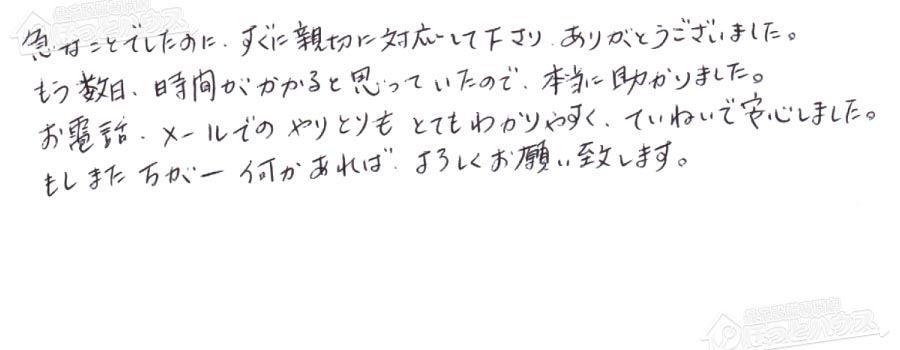 急なことでしたのに、すぐに親切に対応して下さり、ありがとうございました。
もう数日、時間がかかると思っていたので、本当に助かりました。
お電話、メールでのやりとりも とてもわかりやすく、ていねいで安心しました。
もしまた万が一何かあれば、よろしくお願い致します。
ほっとハウス